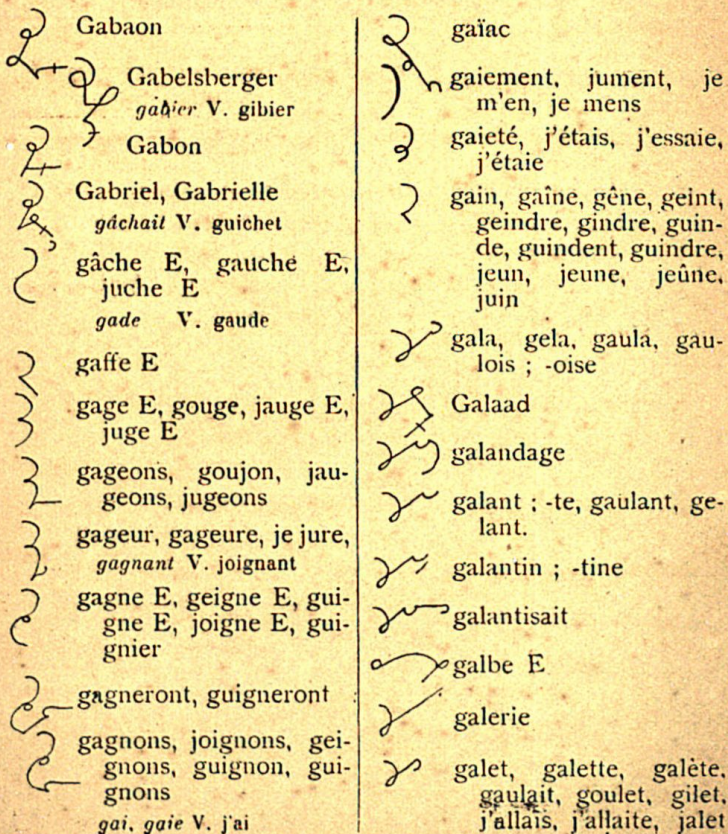 Gabaon
Gabelsberger
gabier V. gibier
Gabon
Gabriel, Gabrielle
gâchait V. guichet
gâche E, gauche E,
juche E
gade V. gaude
gaffe E
gage E, gouge, jauge E,
juge E
gageons, goujon, jau-
geons, jugeons
gageur, gageure, je jure,
gagnant V. joignant
gagne E, geigne E, gui-
gne E, joigne E, gui-
gnier
gagneront, guigneront
gagnons, joignons, gei-
gnons, guignon, gui-
gnons
gai, gaie V. j'ai
gaïac
gaiement, jument, je
m'en, je mens
gaieté, j'étais, j'essaie,
j'étaie
gain, gaîne, gêne, geint,
geindre, gindre, guin-
de, guindent, guindre,
jeun, jeune, jeûne,
juin
gala, gela, gaula, gau-
lois ; -oise
Galaad
galandage
galant ; -te, gaulant, ge-
lant.
galantin ; -tine
galantisait
galbe E
galerie
galet, galette, galète,
gaulait, goulet, gilet,
j'allais, j'allaite, jalet